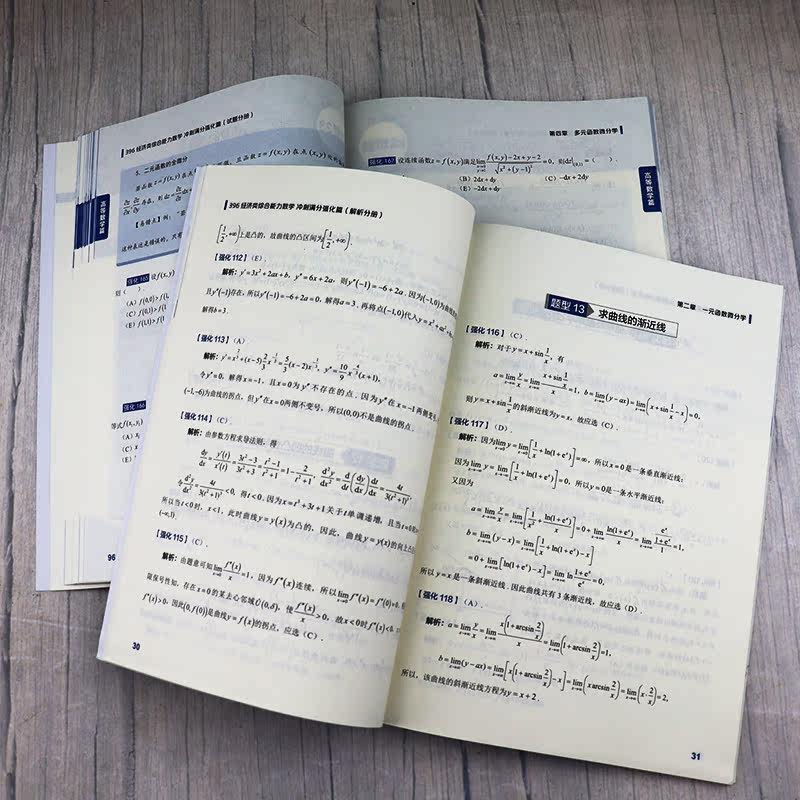 396 经济类综合能力数学 冲刺满分强化篇（试题分册）
5. 二元函数的全微分
若函数z=f(x,y)在点(x,y)
这种表达是错误的，只有
【强化 165】设f(x,y)
则（
(A) f(0,0)>f(1,
(C) f(0,1)>f(1
(E) f(1,1)>f(1
强化 166
等式f(x₁,y₁)
(A)
(C)
(E)
高等数学篇
96
第四章 多元函数微分学
强化 167 设连续函数z=f(x,y)满足lim (f(x,y)-2x+y-2)/√(x²+(y-1)²)=0，则dz|(0,1)=（ ）．
(B) 2dx+dy (C) -dx+2dy
(E) -2dx+dy
高等数学篇
396 经济类综合能力数学 冲刺满分强化篇（解析分册）
[1/2,+∞)上是凸的，故曲线的凸区间为[1/2,+∞)．
【强化 112】(E)．
解析：y'=3x²+2ax+b，y''=6x+2a，则y''(-1)=-6+2a．因为(-1,0)为曲线的
且y''(-1)存在，所以y''(-1)=-6+2a=0，解得a=3．再将点(-1,0)代入y=x³+ax²+
解得b=3．
【强化 113】(A)
解析：y'=x^(2/3)+(x-5)(2/3)x^(-1/3)=(5/3)(x-2)x^(-1/3)，y''=(10/9)x^(-4/3)(x+1)，
令y''=0，解得x=-1，且x=0为y''不存在的点．因为y''在x=-1两侧变号
(-1,-6)为曲线拐点，但y''在x=0两侧不变号，所以(0,0)不是曲线的拐点．
【强化 114】(C)．
解析：由参数方程求导法则，得
dy/dx=y'(t)/x'(t)=(3t²-3)/(3t²+3)=(t²-1)/(t²+1)=1-2/(t²+1)，d²y/dx²=d/dt(dy/dx)dt/dx=4t/3(t²+1)³，
令d²y/dx²=4t/3(t²+1)³<0，得t<0．因为x=t³+3t+1关于t单调递增，且当t=0时
所以当t<0时，x<1，此时曲线y=y(x)为凸的，因此，曲线y=y(x)的向上凸
(-∞,1)．
【强化 115】(C)．
解析：由题意可知lim(x→0) f''(x)/x=1，因为f''(x)连续，所以lim(x→0) f''(x)=f''(0)=0，
限保号性知，存在x=0的某去心邻域Ů(0,δ)，使f''(x)/x>0，故x<0时f''(x)<0，
f''(x)>0，因此(0,f(0))是曲线y=f(x)的拐点，应选（C）．
30
第二章 一元函数微分学
题型 13 求曲线的渐近线
【强化 116】(C)．
解析：对于y=x+sin(1/x)，有
a=lim(x→∞) y/x=lim(x→∞) (x+sin(1/x))/x=1，b=lim(x→∞)(y-ax)=lim(x→∞)(x+sin(1/x)-x)=0，
则y=x+sin(1/x)的斜渐近线为y=x，故应选（C）．
【强化 117】(D)．
解析：因为lim(x→0) y=lim(x→0)[1/x+ln(1+eˣ)]=∞，所以x=0是一条垂直渐近线；
因为lim(x→-∞) y=lim(x→-∞)[1/x+ln(1+eˣ)]=0，所以y=0是一条水平渐近线；
又因为
a=lim(x→+∞) y/x=lim(x→+∞)[1/x²+ln(1+eˣ)/x]=0+lim(x→+∞) ln(1+eˣ)/x=lim(x→+∞) (eˣ/(1+eˣ))/1=1，
b=lim(x→+∞)(y-x)=lim(x→+∞)[1/x+ln(1+eˣ)-x]
=0+lim(x→+∞)[ln(1+eˣ)-x]=lim(x→+∞) ln((1+eˣ)/eˣ)=0，
所以y=x是一条斜渐近线．因此曲线共有3条渐近线，故应选（D）．
【强化 118】(A)．
解析：a=lim(x→∞) y/x=lim(x→∞) x(1+arcsin(2/x))/x=lim(x→∞)(1+arcsin(2/x))=1，
b=lim(x→∞)(y-ax)=lim(x→∞)[x(1+arcsin(2/x))-x]=lim(x→∞)(x arcsin(2/x))=lim(x→∞)(x·2/x)=2，
所以，该曲线的斜渐近线方程为y=x+2．
31